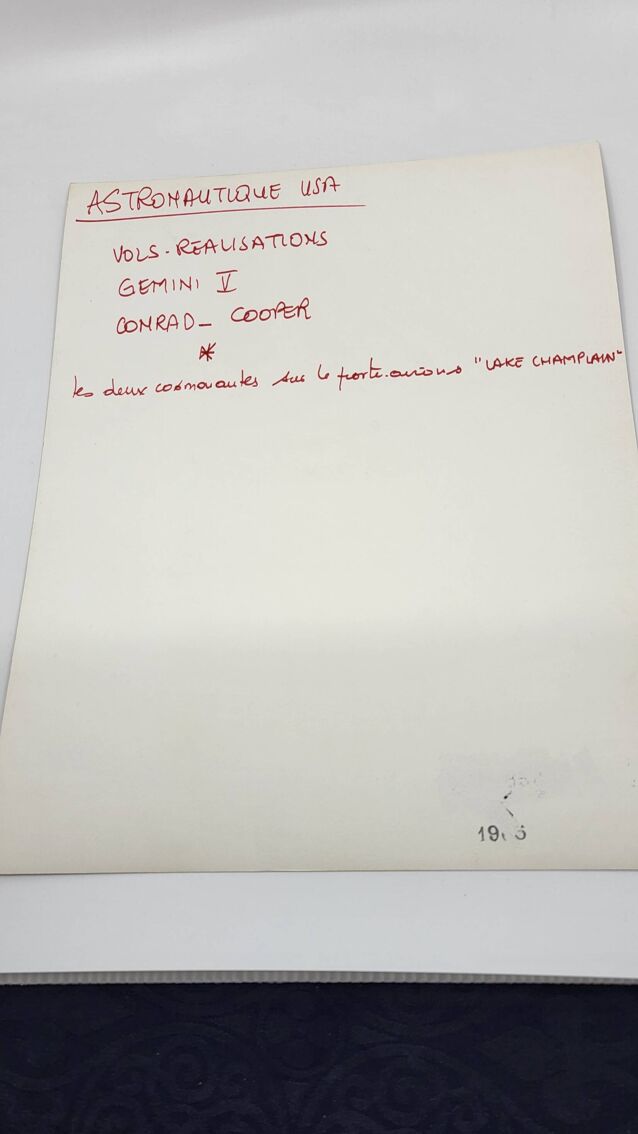 ASTRONAUTIQUE USA
VOLS - REALISATIONS
GEMINI V
CONRAD - COOPER
*
les deux cosmonautes sur le porte-avions "LAKE CHAMPLAIN"